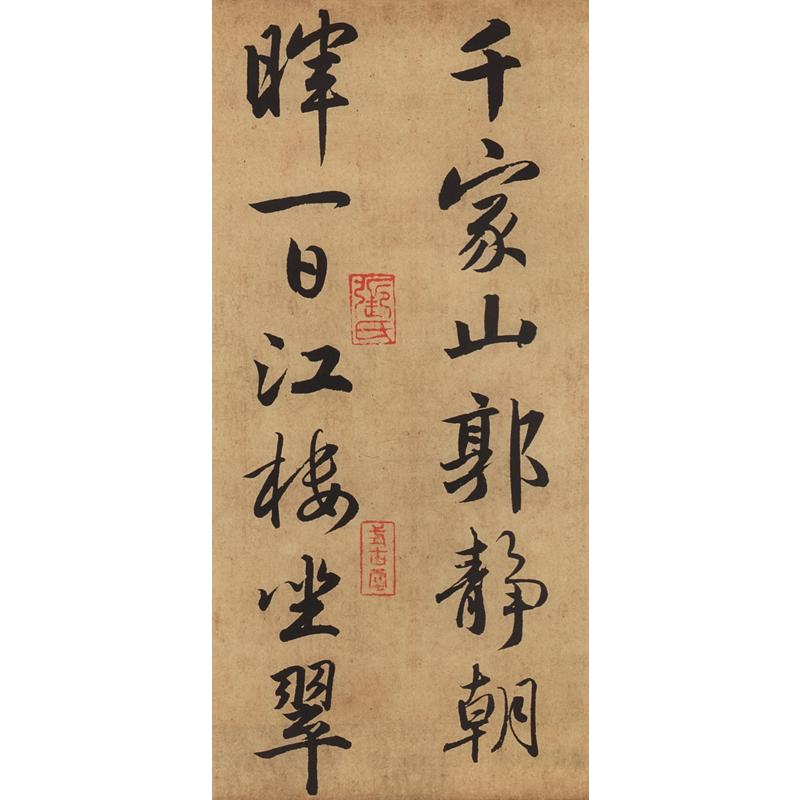 千家山郭靜朝
暉一日江樓坐翠